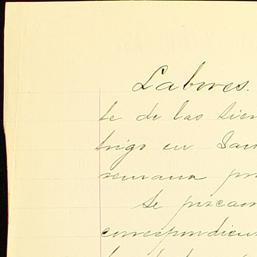 Labores.
te de las tier
trigo en San
semana pr
Se
correspondien